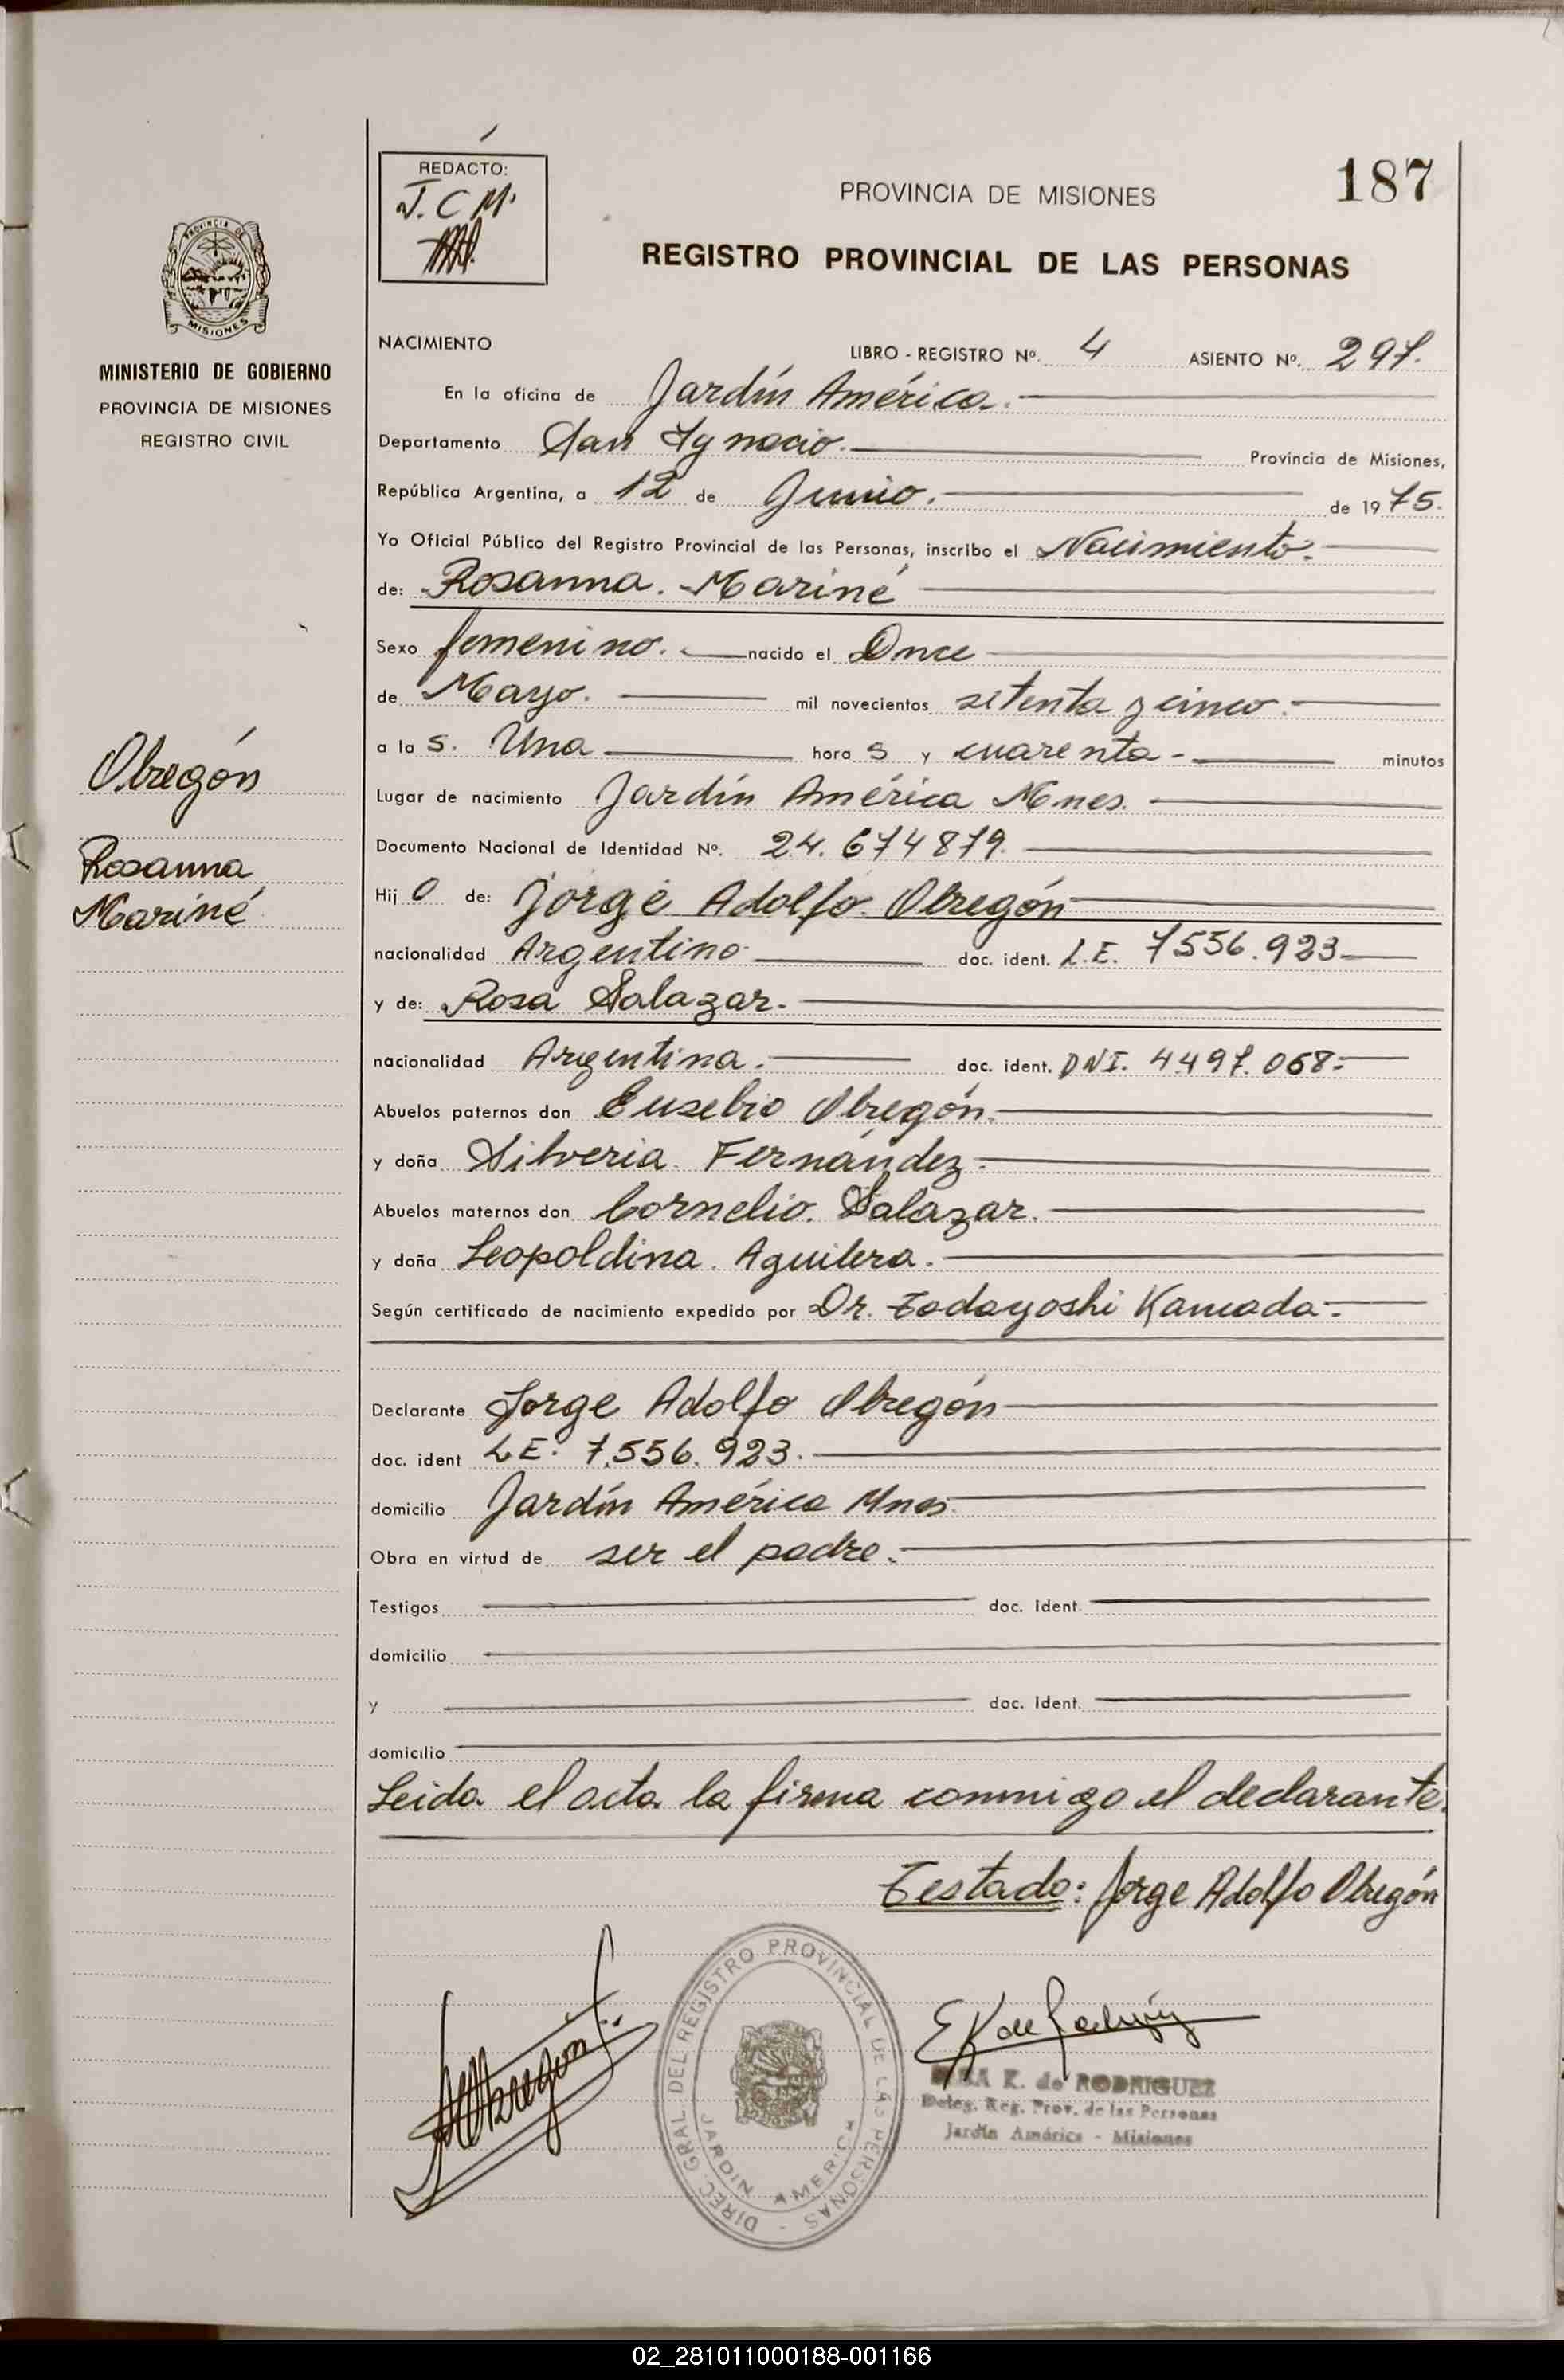 REDACTO:
J. C M.
PROVINCIA DE MISIONES
187
REGISTRO PROVINCIAL DE LAS PERSONAS
PROVINCIA DE
MISIONES
MINISTERIO DE GOBIERNO
PROVINCIA DE MISIONES
REGISTRO CIVIL
NACIMIENTO LIBRO - REGISTRO Nº. 4 ASIENTO Nº. 297.
En la oficina de Jardín América.
Departamento San Ygnacio. Provincia de Misiones,
República Argentina, a 12 de Junio. de 1975.
Yo Oficial Público del Registro Provincial de las Personas, inscribo el Nacimiento.
de: Rosanna. Mariné
Sexo femenino. nacido el Once
de Mayo. mil novecientos setenta y cinco.
a la s. Una hora s y cuarenta minutos
Obregón
Rosanna
Mariné
Lugar de nacimiento Jardín América Mnes.
Documento Nacional de Identidad Nº. 24.674879.
Hij o de: Jorge Adolfo Obregón
nacionalidad Argentino doc. ident. L.E. 7556.923
y de: Rosa Salazar.
nacionalidad Argentina. doc. ident. DNI. 4497.068
Abuelos paternos don Eusebio Obregón.
y doña Silveria Fernández.
Abuelos maternos don Cornelio. Salazar.
y doña Leopoldina. Aguilera.
Según certificado de nacimiento expedido por Dr. Tadayoshi Kamada.
Declarante Jorge Adolfo Obregón
doc. ident L.E. 7.556.923.
domicilio Jardín América Mnes.
Obra en virtud de ser el padre.
Testigos doc. ident.
domicilio
y doc. Ident.
domicilio
Leida el acta la firma conmigo el declarante.
Testado: Jorge Adolfo Obregón
DIREC. GRAL. DEL REGISTRO PROVINCIAL DE LAS PERSONAS -
JARDIN AMERICA
K. de RODRIGUEZ
Deleg. Reg. Prov. de las Personas
Jardín América - Misiones
02_281011000188-001166